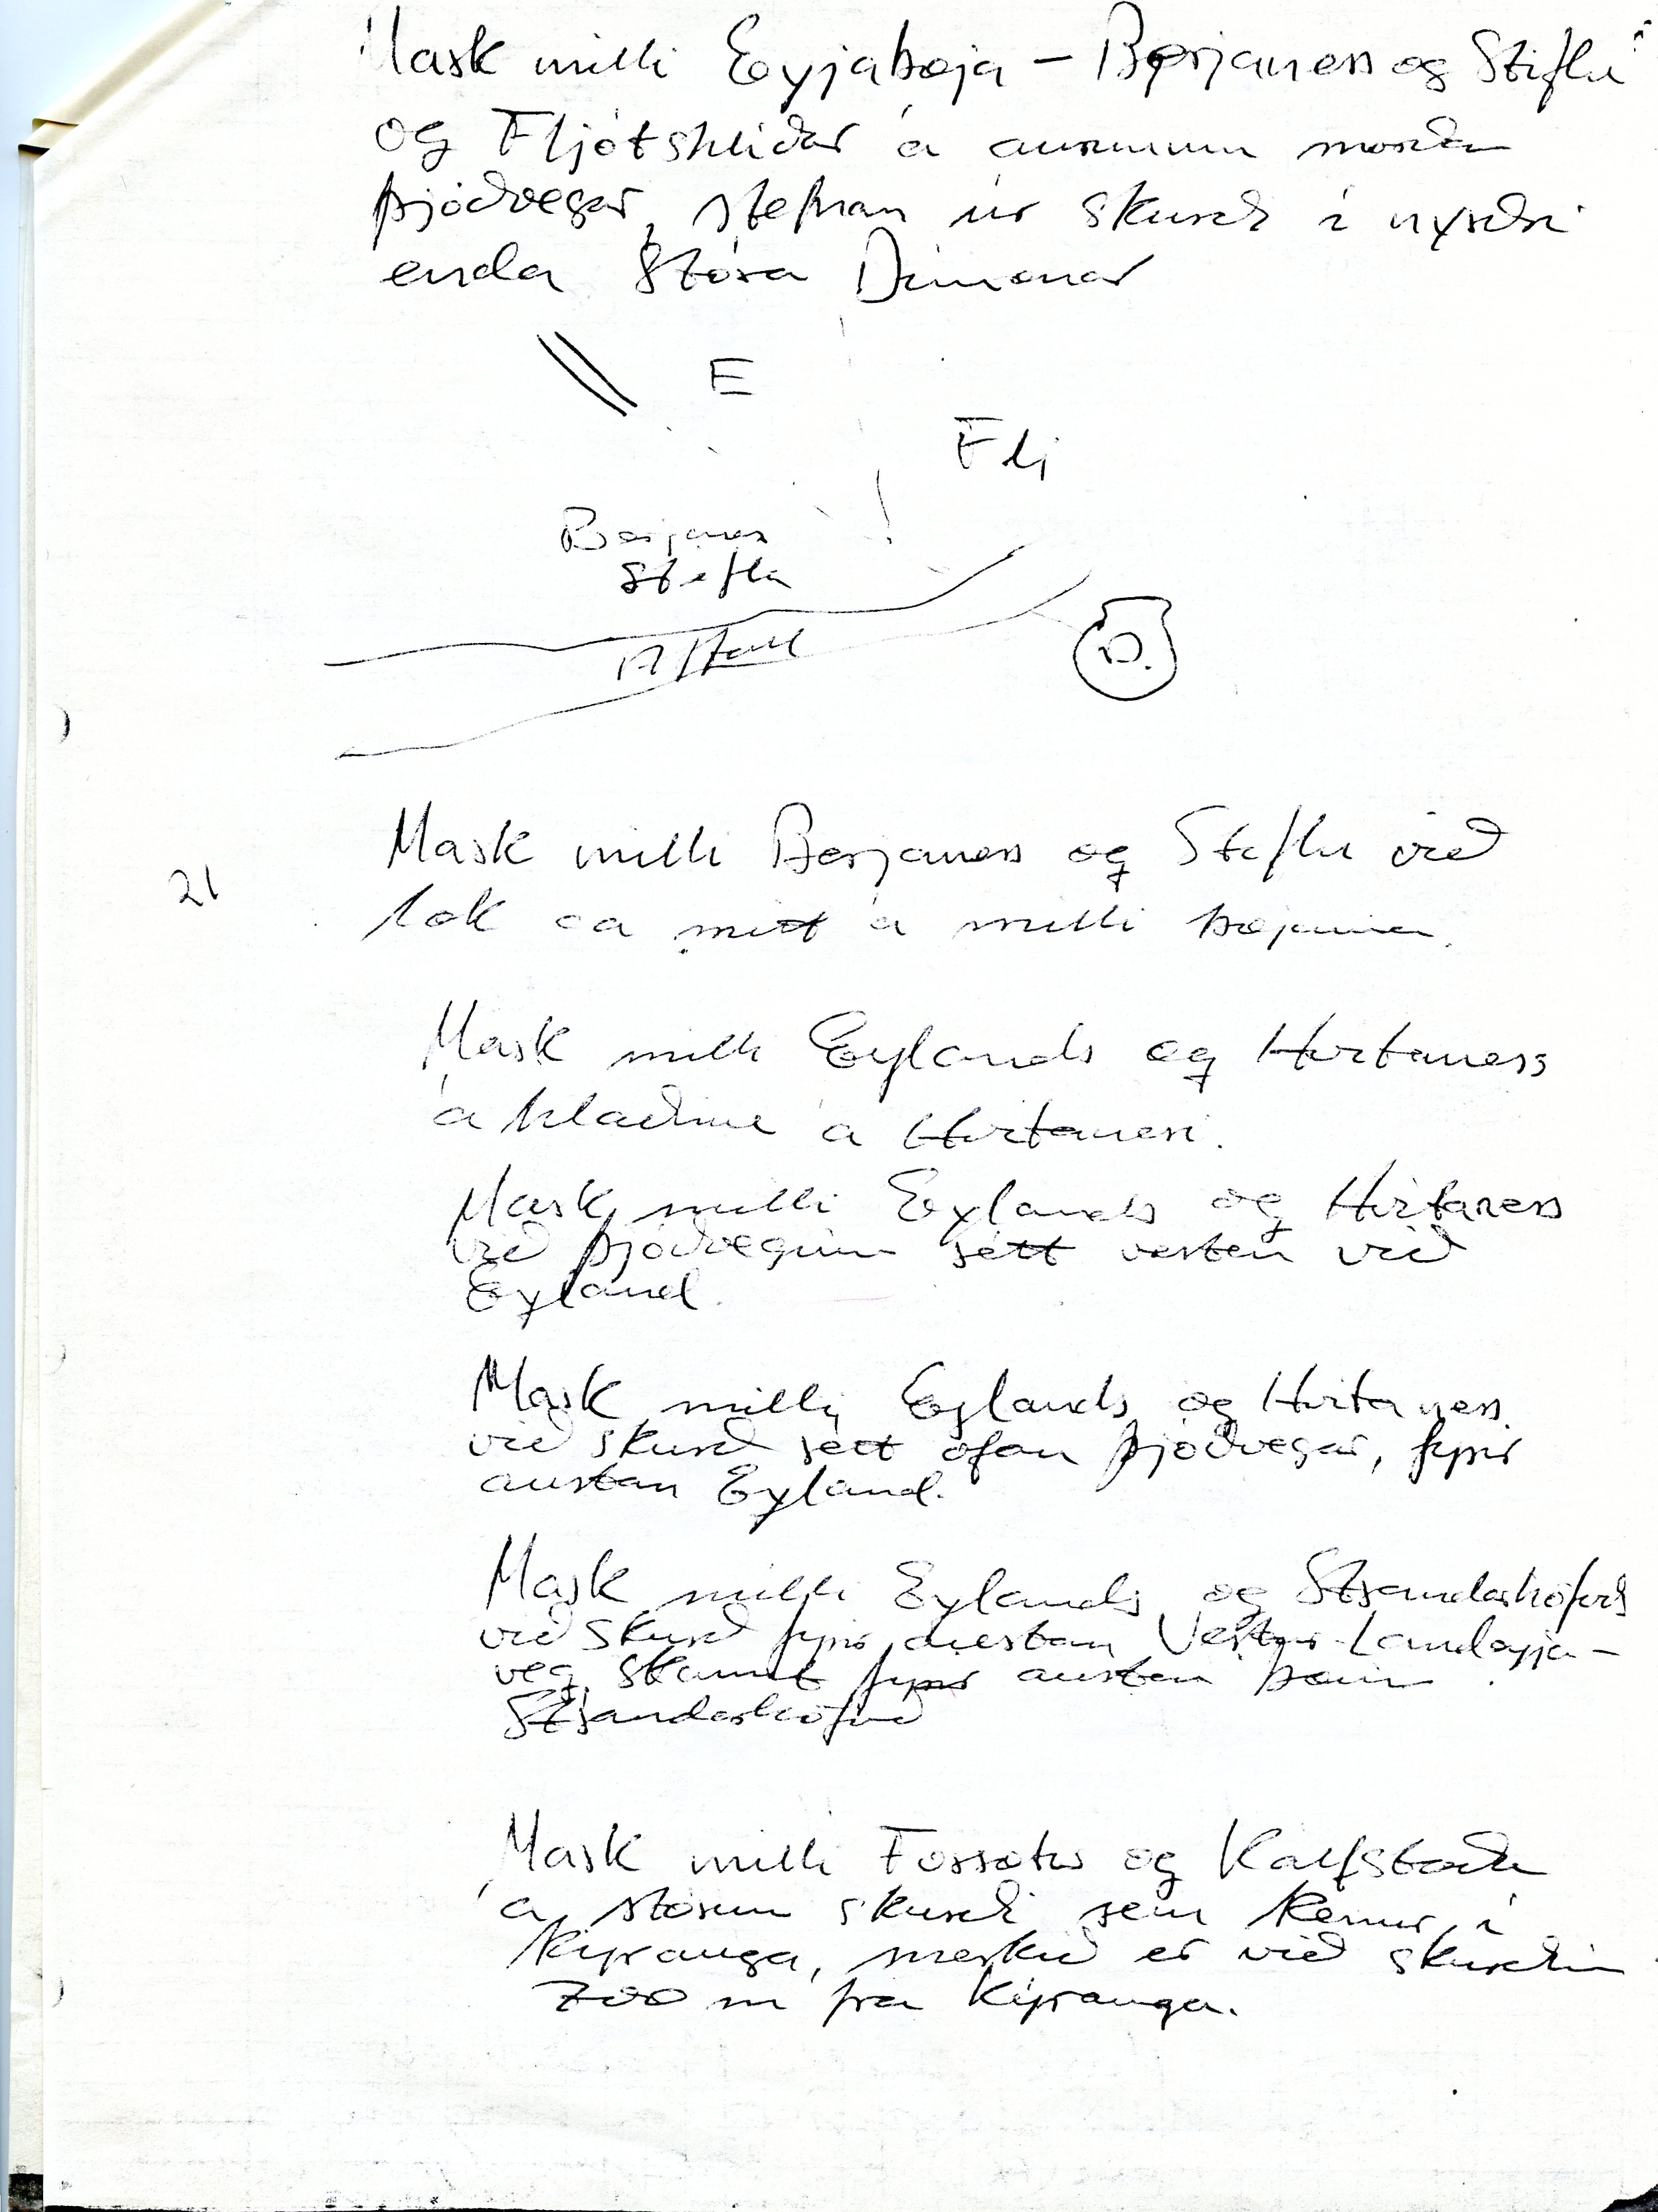 Mark milli Eyjabæja - Berjaness og Stíflu
og Fljótshlíðar á aurunum norðan
þjóðvegar, stefnan úr skurði í nyrðri
enda Stóra Dímonar
E
Flj
Berjanes
Stífla
Affall
D.
Mark milli Berjaness og Stíflu við
21
læk ca mitt á milli bæjanna.
Mark milli Eylands og Hvítaness
á hlaðinu á Hvítanesi.
Mark milli Eylands og Hvítaness
við þjóðveginn rétt vestan við
Eyland.
Mark milli Eylands og Hvítaness
við skurð rétt ofan þjóðvegar, fyrir
austan Eyland.
Mark milli Eylands og Strandarhöfuðs
við skurð fyrir austan Vestur-Landeyja-
veg, skammt fyrir austan bæinn
Strandarhöfuð
Mark milli Forsætis og Kálfsstaða
á stórum skurði sem kemur í
Kýrauga, merkið er við skurðinn
700 m frá Kýrauga.